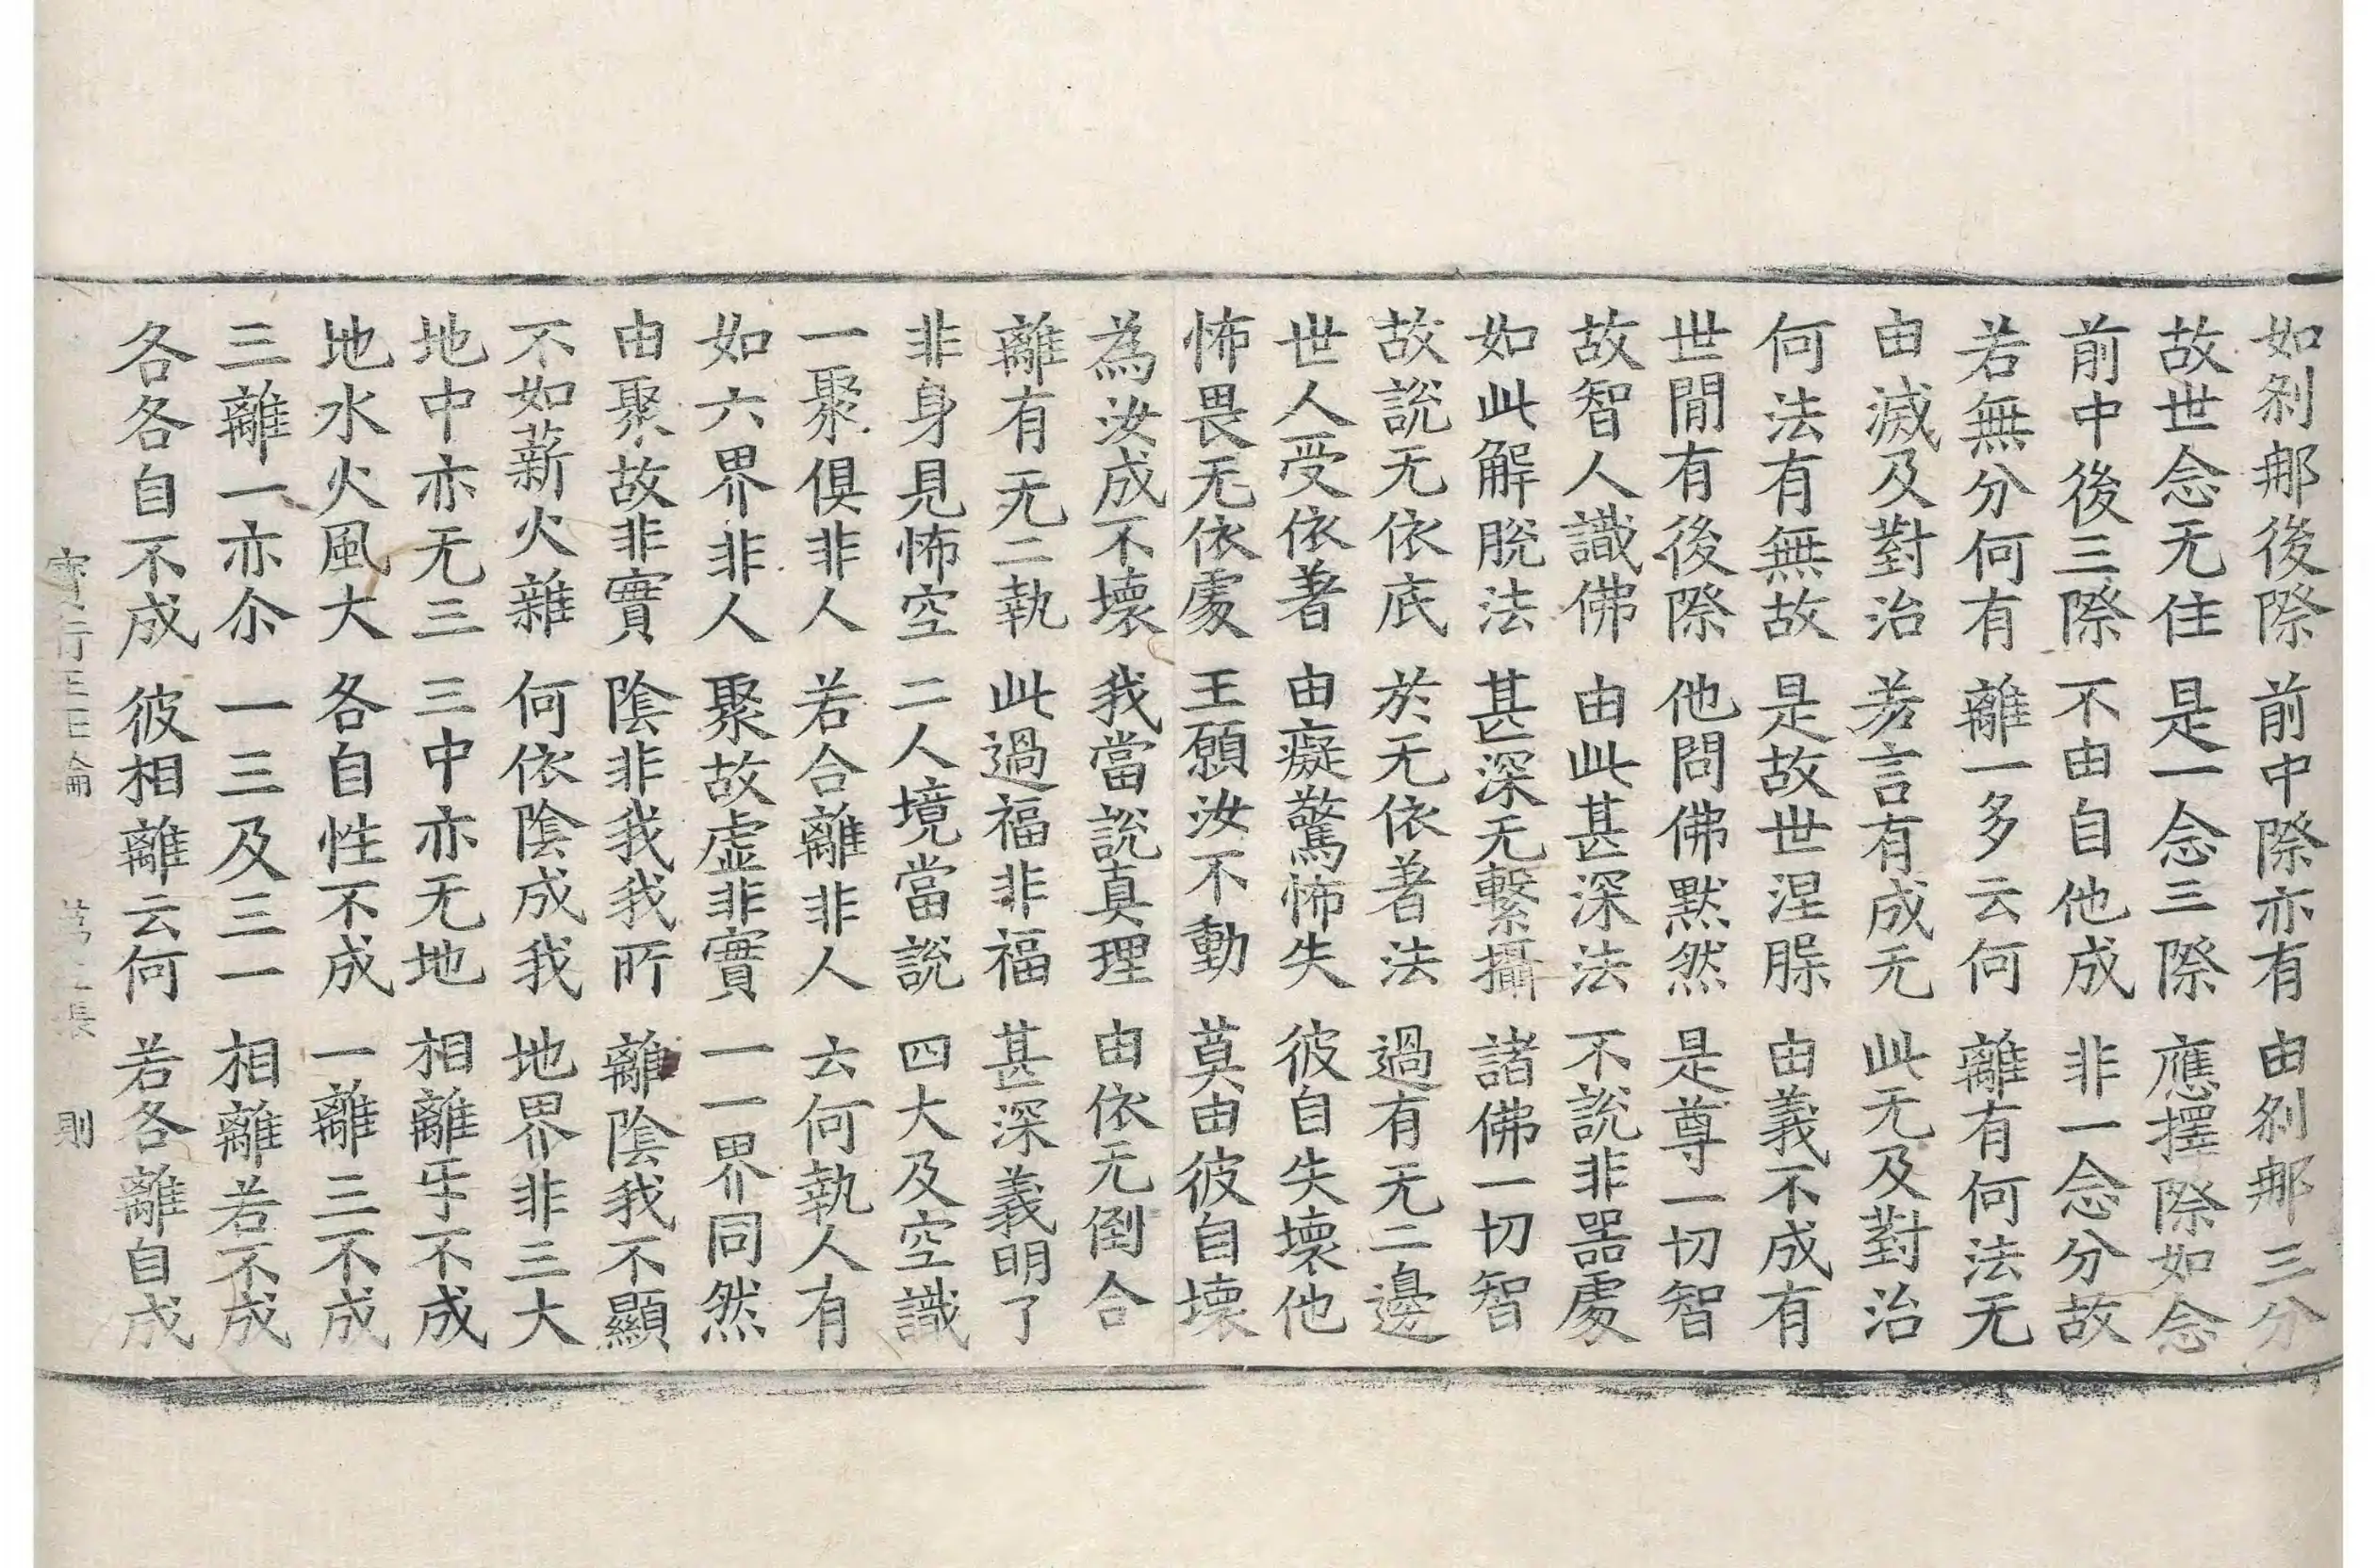 如刹那後際　前中際亦有　由刹那三分
故世念无住　是一念三際　應擇際如念
前中後三際　不由自他成　非一念分故
若無分何有　離一多云何　離有何法无
由滅及對治　若言有成无　此无及對治
何法有無故　是故世涅脲　由義不成有
世閒有後際　他問佛默然　是尊一切智
故智人識佛　由此甚深法　不說非器處
如此解脫法　甚深无繫攝　諸佛一切智
故說无依底　於无依著法　過有无二邊
世人受依著　由癡驚怖失　彼自失壞他
怖畏无依處　王願汝不動　莫由彼自壞
為汝成不壞　我當說真理　由依无倒合
離有无二執　此過福非福　甚深義明了
非身見怖空　二人境當說　四大及空識
一聚俱非人　若合離非人　云何執人有
如六界非人　聚故虛非實　一一界同然
由聚故非實　陰非我我所　離陰我不顯
不如薪火雜　何依陰成我　地界非三大
地中亦无三　三中亦无地　相離㸦不成
地水火風大　各自性不成　一離三不成
三離一亦尒　一三及三一　相離若不成
各各自不成　彼相離云何　若各離自成
寶行王正論　張　則